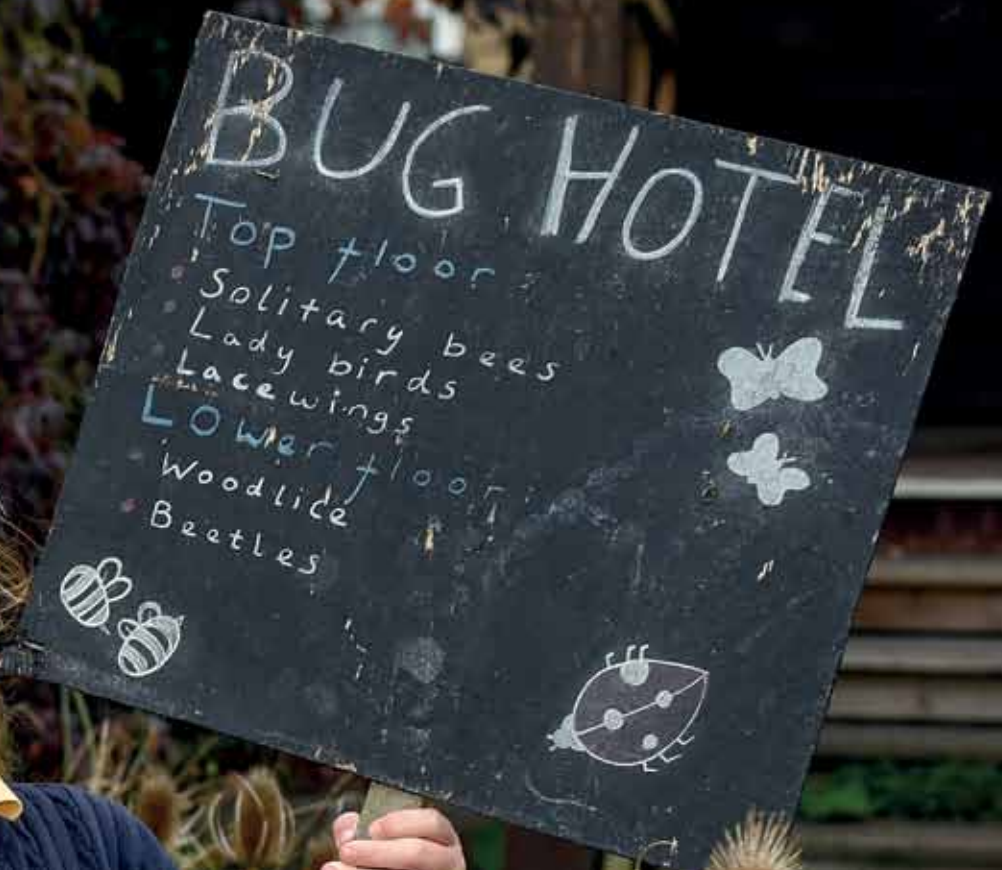 BUG HOTEL
Top floor
Solitary bees
Lady birds
Lacewings
Lower floor
Woodlice
Beetles